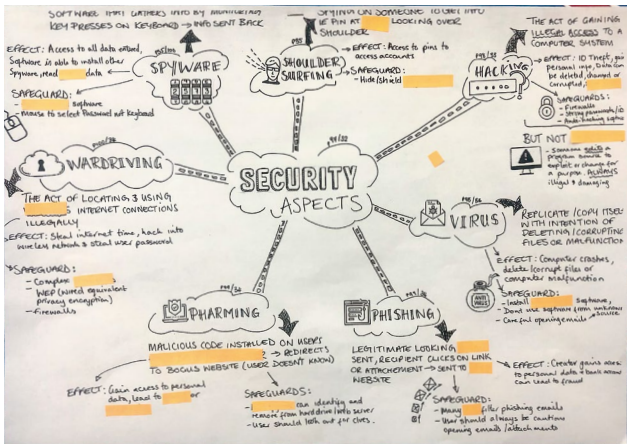 SOFTWARE THAT GATHERS INFO BY MONITORING
KEY PRESSES ON KEYBOARD → INFO SENT BACK
EFFECT: Access to all data entered,
Software is able to install other
Spyware, read data
SAFEGUARD:
- software
- Mouse to select Password not Keyboard
SPYWARE
SPYING ON SOMEONE TO GET INFO
IE PIN AT LOOKING OVER
SHOULDER
EFFECT: Access to pins to
access accounts
SAFEGUARD:
- Hide/Shield
SHOULDER
SURFING
THE ACT OF GAINING
ILLEGAL ACCESS TO A
COMPUTER SYSTEM
EFFECT: ID Theft, gain
personal info, Data can
be deleted, changed or
corrupted,
SAFEGUARDS:
- Firewalls
- Strong passwords/ID
- Anti-hacking
HACKING
BUT NOT
- Someone edits a
program source to
exploit or change for
a purpose. ALWAYS
illegal & damaging
WARDRIVING
THE ACT OF LOCATING & USING
INTERNET CONNECTIONS
ILLEGALLY
EFFECT: Steal internet time, hack into
wireless network & steal user password
SAFEGUARD:
- Complex
- WEP (wired equivalent
privacy encryption)
- Firewalls
SECURITY
ASPECTS
VIRUS
REPLICATE/COPY ITSELF
WITH INTENTION OF
DELETING/CORRUPTING
FILES OR MALFUNCTION
EFFECT: Computer crashes,
delete/corrupt files or
computer malfunction
ANTI
VIRUS
SAFEGUARD:
- Install Software,
- Dont use software from unknown
source
- Careful opening emails
PHARMING
MALICIOUS CODE INSTALLED ON USERS
→ REDIRECTS
TO BOGUS WEBSITE (USER DOESN'T KNOW)
EFFECT: Gain access to personal
data, lead to or
SAFEGUARDS:
- can identify and
remove from hard drive/web server
- User should look out for clues.
PHISHING
LEGITIMATE LOOKING
SENT, RECIPIENT CLICKS ON LINK
OR ATTACHMENT → SENT TO
WEBSITE
EFFECT: Creator gains access
to personal data & bank
can lead to fraud
SAFEGUARD:
- Many filter phishing emails
- User should always be cautious
opening emails/attachments